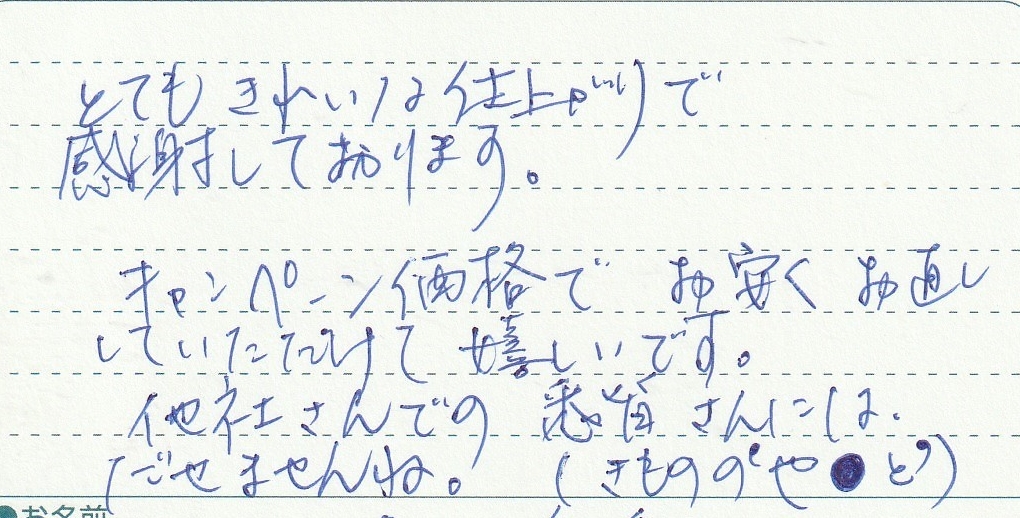 とてもきれいな仕上がりで
感謝しております。
キャンペーン価格で お安く お直し
していただけて 嬉しいです。
他社さんでの 悉皆さんには、
だせませんね。 (きものの や と )
お名前